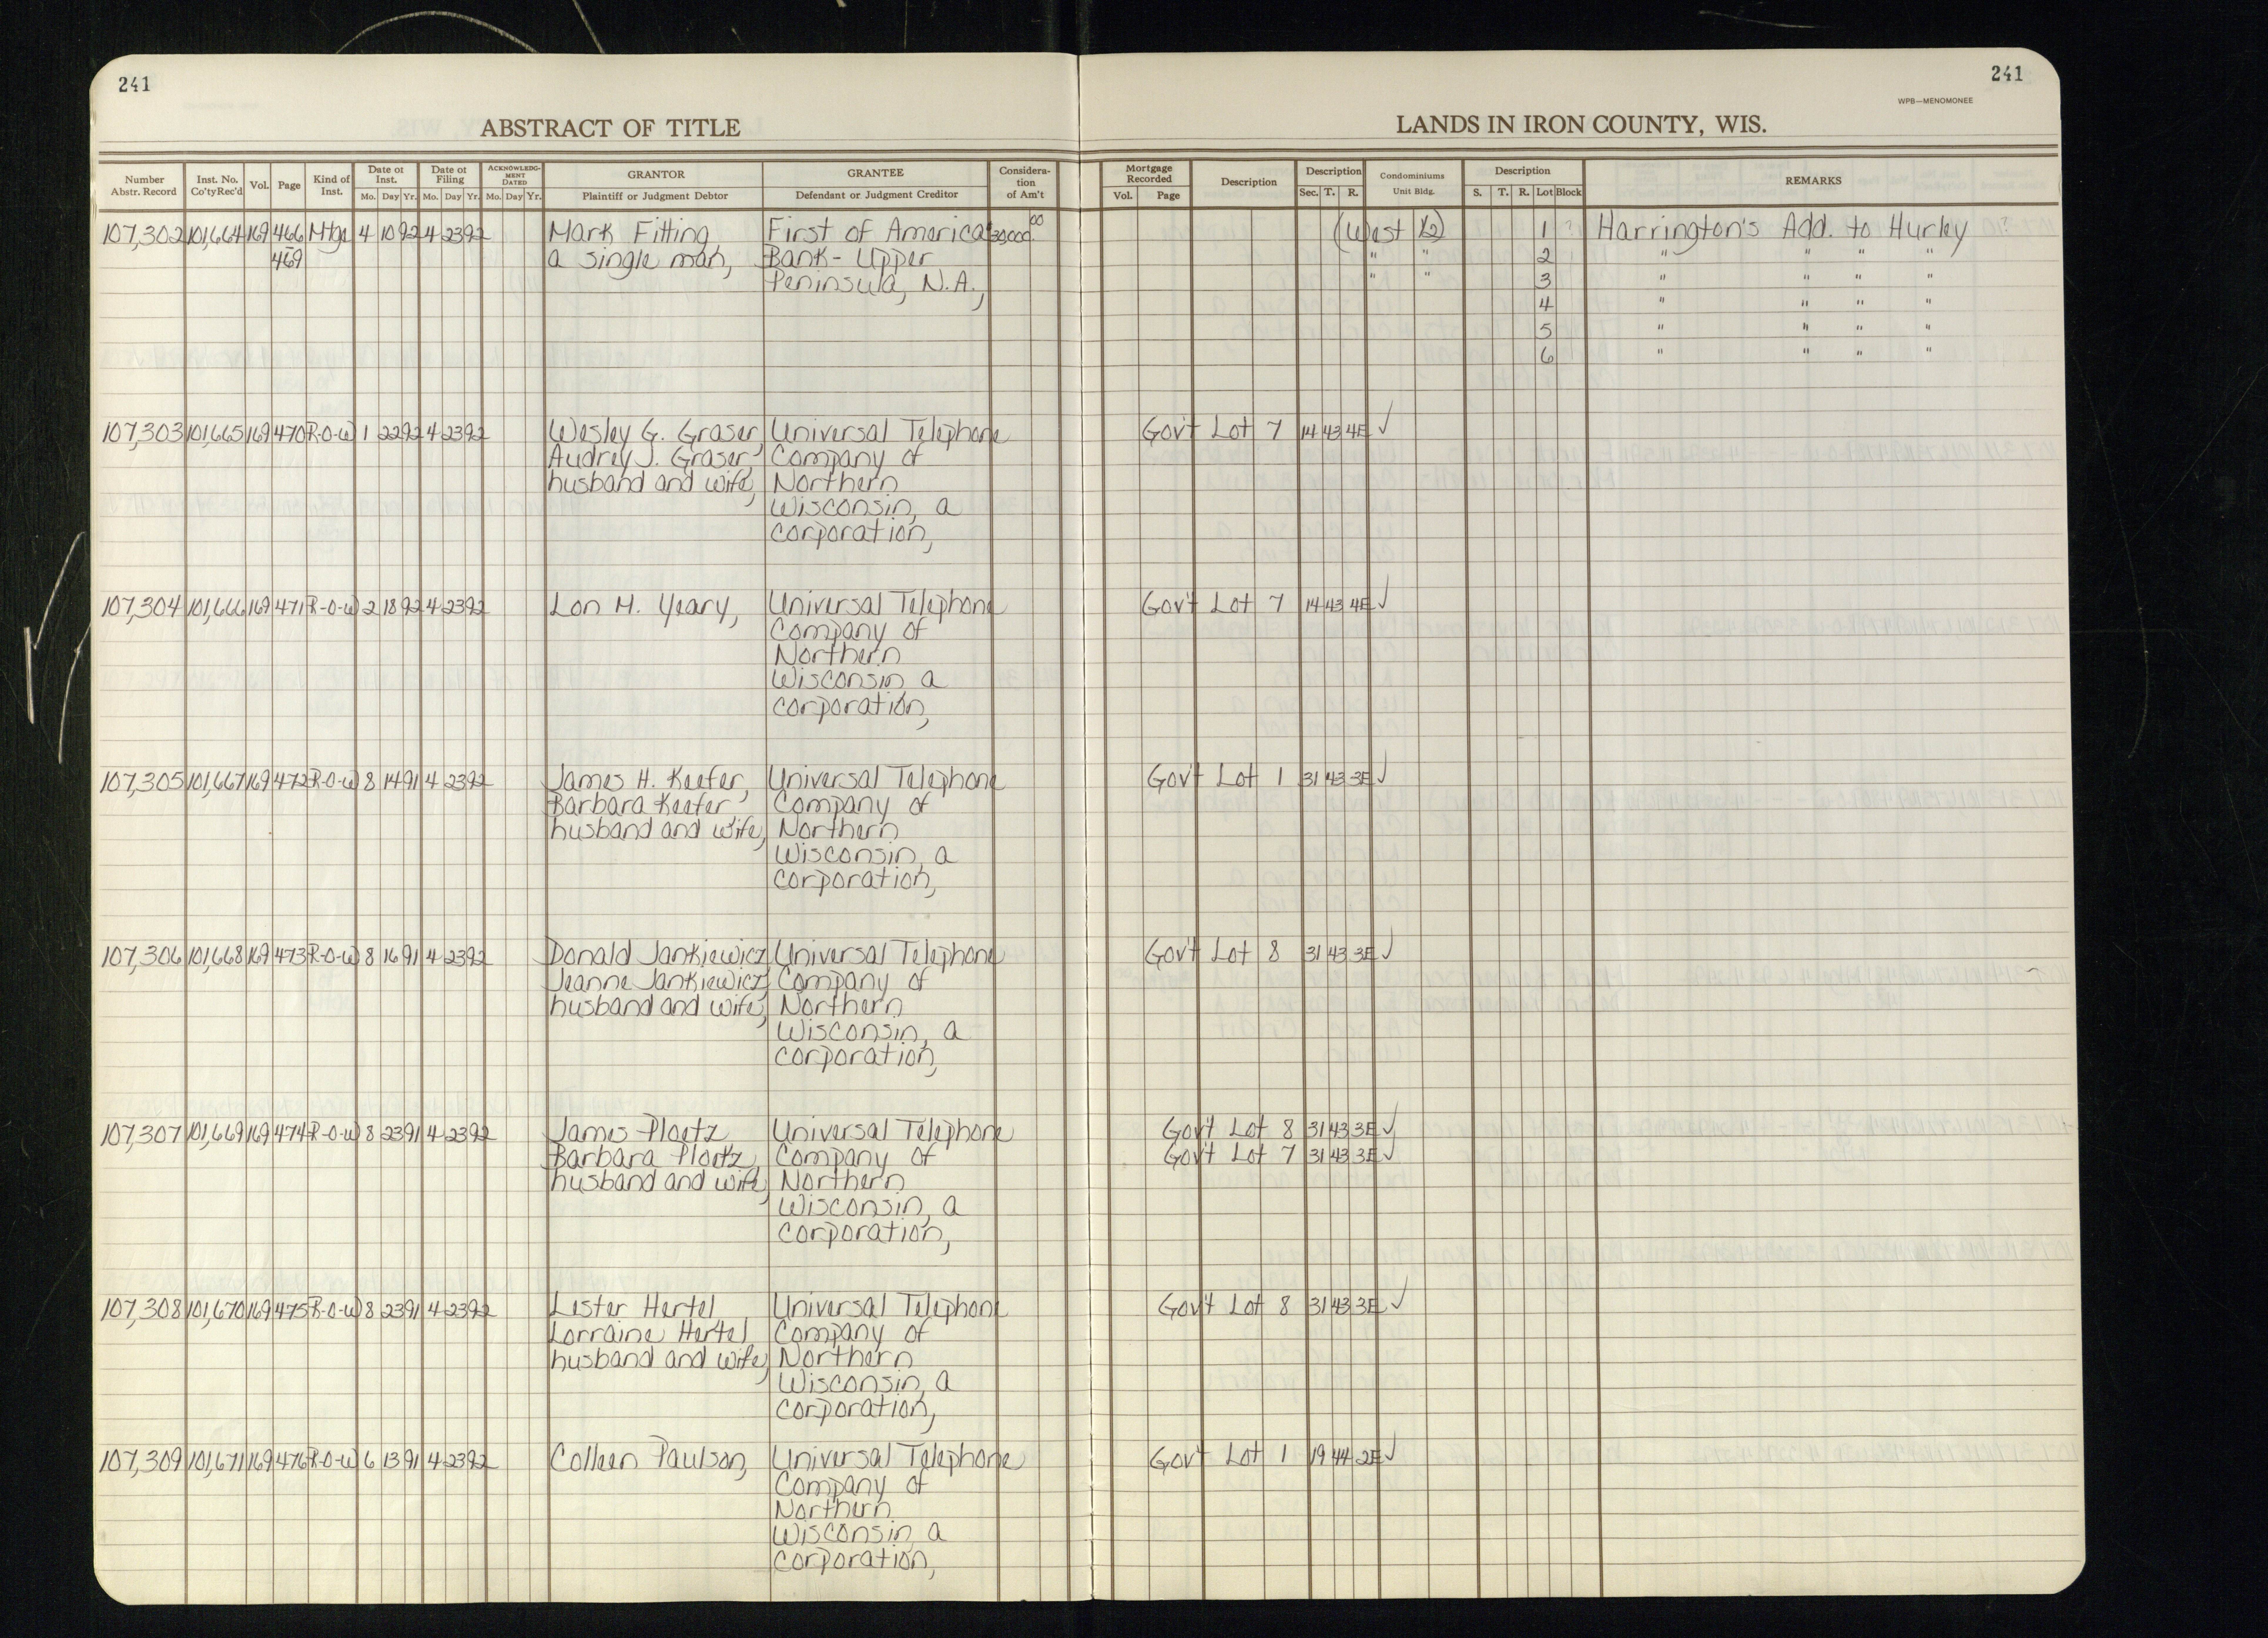 241
241
WPB—MENOMONEE
ABSTRACT OF TITLE
LANDS IN IRON COUNTY, WIS.
Number Abstr. Record | Inst. No. Co'tyRec'd | Vol. | Page | Kind of Inst. | Date of Inst. Mo. Day Yr. | Date of Filing Mo. Day Yr. | ACKNOWLEDGMENT DATED Mo. Day Yr. | GRANTOR Plaintiff or Judgment Debtor | GRANTEE Defendant or Judgment Creditor | Consideration of Am't | Mortgage Recorded Vol. Page | Description | Description Sec. T. R. | Condominiums Unit Bldg. | Description S. T. R. Lot Block | REMARKS
107,302 101,664 169 466 Mtge 4 10 92 4 23 92 Mark Fitting, First of America 30,000.00 (West ½) 1 ? Harrington's Add. to Hurley ?
469 a single man, Bank- Upper " " 2 " " " "
Peninsula, N.A., " " 3 " " " "
4 " " " "
5 " " " "
6 " " " "
107,303 101,665 169 470 R-O-W 1 22 92 4 23 92 Wesley G. Graser, Universal Telephone Gov't Lot 7 14 43 4E ✓
Audrey J. Graser, Company of
husband and wife, Northern
Wisconsin, a
corporation,
107,304 101,666 169 471 R-O-W 2 18 92 4 23 92 Lon M. Yeary, Universal Telephone Gov't Lot 7 14 43 4E ✓
Company of
Northern
Wisconsin, a
corporation,
107,305 101,667 169 472 R-O-W 8 14 91 4 23 92 James H. Keefer, Universal Telephone Gov't Lot 1 31 43 3E ✓
Barbara Keefer, Company of
husband and wife, Northern
Wisconsin, a
corporation,
107,306 101,668 169 473 R-O-W 8 16 91 4 23 92 Donald Jankiewicz, Universal Telephone Gov't Lot 8 31 43 3E ✓
Jeanne Jankiewicz, Company of
husband and wife, Northern
Wisconsin, a
corporation,
107,307 101,669 169 474 R-O-W 8 23 91 4 23 92 James Ploetz, Universal Telephone Gov't Lot 8 31 43 3E ✓
Barbara Ploetz, Company of Gov't Lot 7 31 43 3E ✓
husband and wife, Northern
Wisconsin, a
corporation,
107,308 101,670 169 475 R-O-W 8 23 91 4 23 92 Lester Hertel Universal Telephone Gov't Lot 8 31 43 3E ✓
Lorraine Hertel Company of
husband and wife, Northern
Wisconsin, a
corporation,
107,309 101,671 169 476 R-O-W 6 13 91 4 23 92 Colleen Paulson, Universal Telephone Gov't Lot 1 19 44 2E ✓
Company of
Northern
Wisconsin, a
corporation,